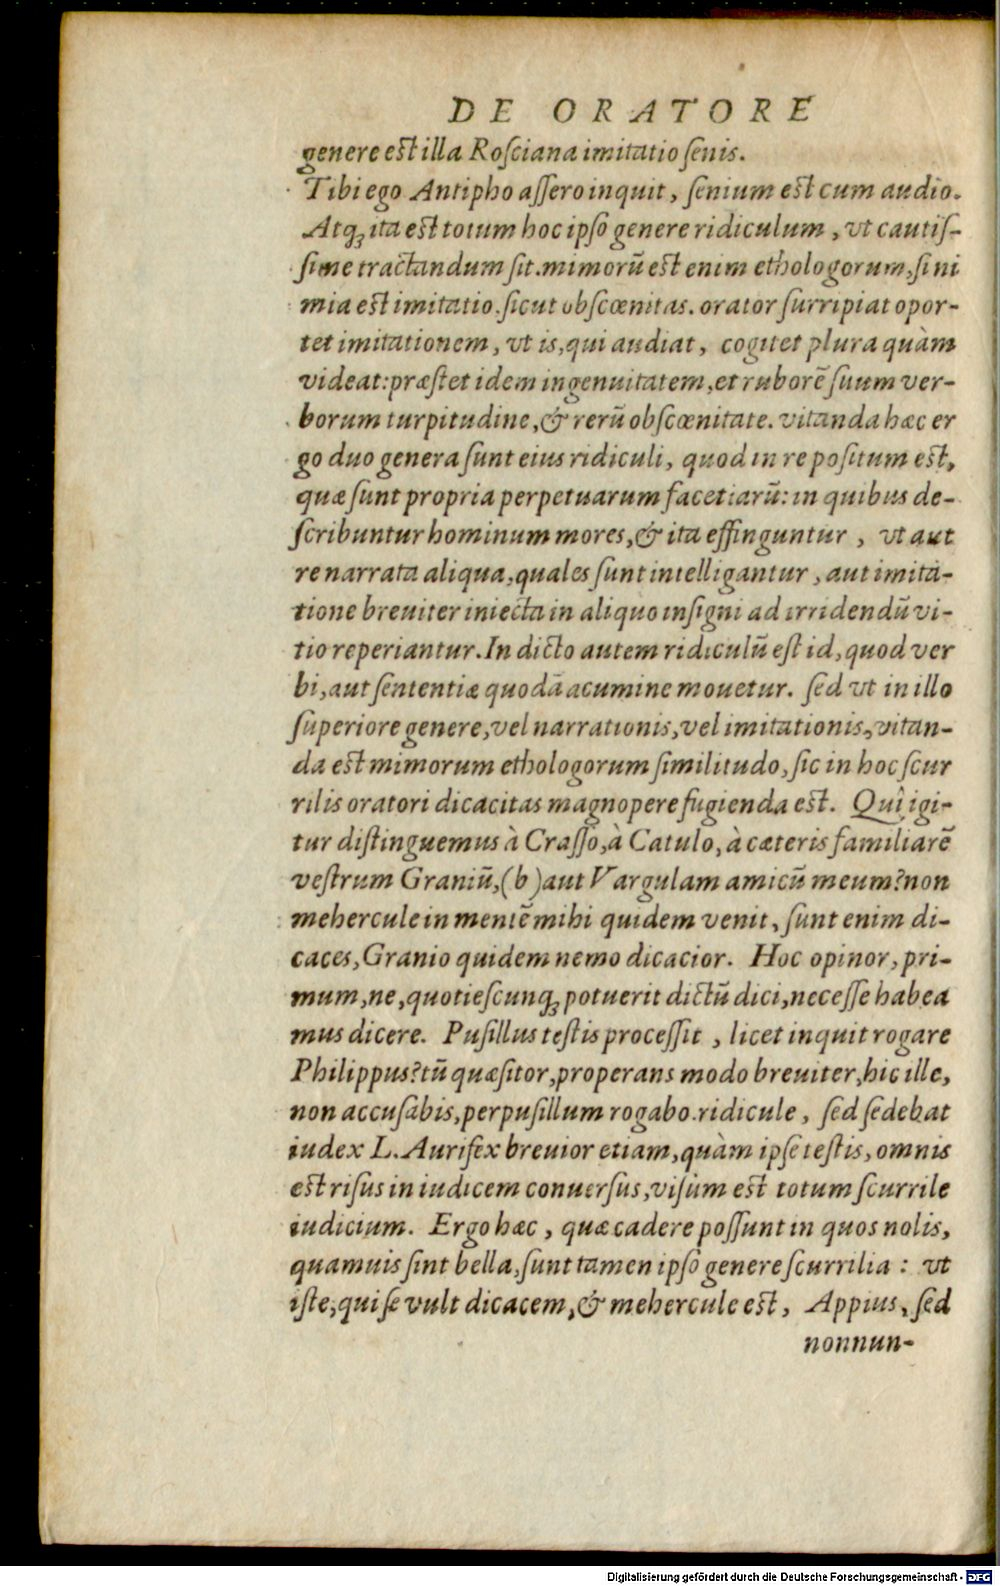 DE ORATORE
genere est illa Rosciana imitatio senis.
Tibi ego Antipho assero inquit, senium est cum audio.
Atq; ita est totum hoc ipso genere ridiculum, vt cautis-
sime tractandum sit. mimorū est enim ethologorum, si ni
mia est imitatio. sicut obscœnitas. orator surripiat opor-
tet imitationem, vt is, qui audiat, cogitet plura quàm
videat: præstet idem ingenuitatem, et ruborē suum ver-
borum turpitudine, & rerū obscœnitate. vitanda hæc er
go duo genera sunt eius ridiculi, quod in re positum est,
quæ sunt propria perpetuarum facetiarū: in quibus de-
scribuntur hominum mores, & ita effinguntur, vt aut
re narrata aliqua, quales sunt intelligantur, aut imita-
tione breuiter iniecta in aliquo insigni ad irridendū vi-
tio reperiantur. In dicto autem ridiculū est id, quod ver
bi, aut sententiæ quodā acumine mouetur. sed vt in illo
superiore genere, vel narrationis, vel imitationis, vitan-
da est mimorum ethologorum similitudo, sic in hoc scur
rilis oratori dicacitas magnopere fugienda est. Quî igi-
tur distinguemus à Crasso, à Catulo, à cæteris familiarē
vestrum Graniū, (b) aut Vargulam amicū meum? non
mehercule in mentē mihi quidem venit, sunt enim di-
caces, Granio quidem nemo dicacior. Hoc opinor, pri-
mum, ne, quotiescunq; potuerit dictū dici, necesse habea
mus dicere. Pusillus testis processit, licet inquit rogare
Philippus? tū quæsitor, properans modo breuiter, hic ille,
non accusabis, perpusillum rogabo. ridicule, sed sedebat
iudex L. Aurifex breuior etiam, quàm ipse testis, omnis
est risus in iudicem conuersus, visum est totum scurrile
iudicium. Ergo hæc, quæ cadere possunt in quos nolis,
quamuis sint bella, sunt tamen ipso genere scurrilia: vt
iste, qui se vult dicacem, & mehercule est, Appius, sed
nonnun-
Digitalisierung gefördert durch die Deutsche Forschungsgemeinschaft - DFG